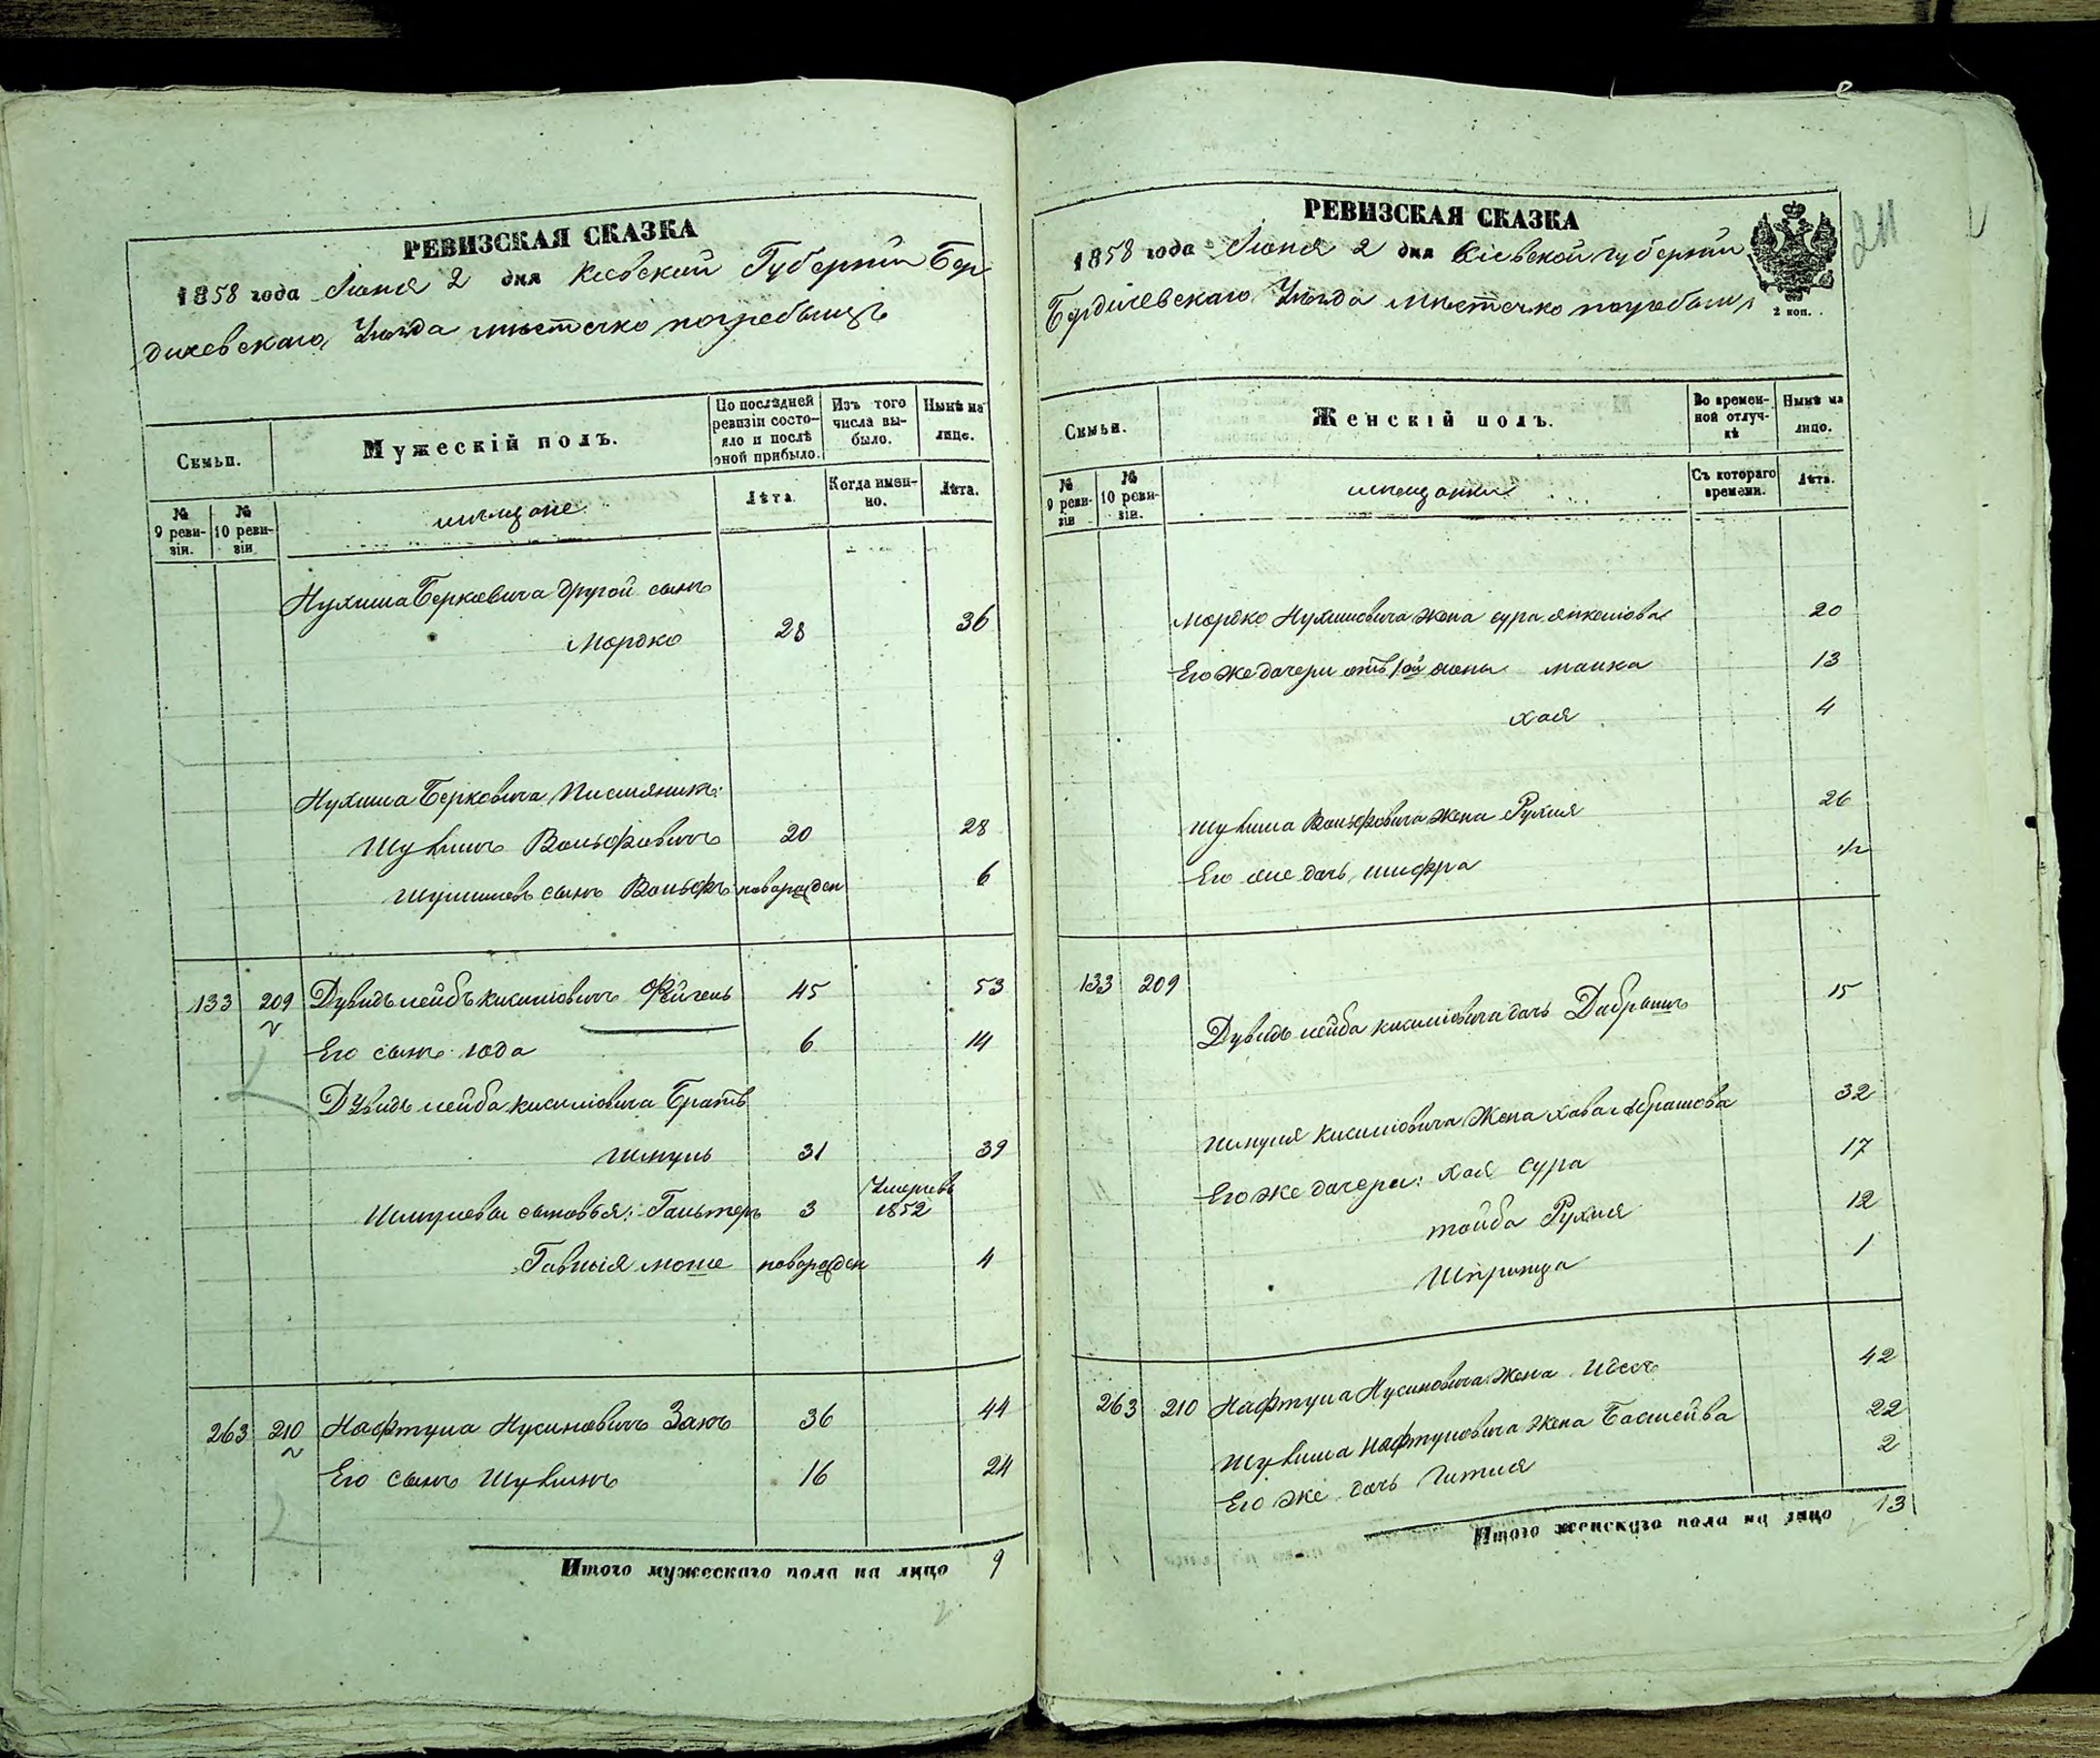 РЕВИЗСКАЯ СКАЗКА
1858 года Июня 2 дня Кіевской Губерніи Бер
дичевскаго Уѣзда мѣстечко погребыщъ
Семьи.
Мужескій полъ.
По послѣдней ревизіи состояло и послѣ оной прибыло.
Изъ того числа выбыло.
Нынѣ на лицо.
№ 9 ревизіи.
№ 10 ревизіи
мѣщане
Лѣта.
Когда именно.
Лѣта.
Нухима Берковича другой сынъ
Мордко 28 36
Нухима Берковича племяникъ:
Шулимъ Вольфовичъ 20 28
Шулимовъ сынъ Вольфъ новорожден 6
133 209 Дувидъ лейбъ кисилiовичъ Фейгень 45 53
Его сынъ Iода 6 14
Дувидъ лейба кисилiовича Братъ
Шмуль 31 39
Шмулевы сыновья: Гальтеръ 3 Умеръ въ 1852
Гавшiя моше новорожден 4
263 210 Нафтула Нусиновичъ Закъ 36 44
Его сынъ Шулимъ 16 24
Итого мужескаго пола на лицо 9
РЕВИЗСКАЯ СКАЗКА
1858 года Июня 2 дня Кіевской губерніи
Бердичевскаго Уѣзда мѣстечко погребыщ
2 коп.
211
Семьи.
Женскій полъ.
Во временной отлучкѣ
Нынѣ на лицо.
№ 9 ревизіи
№ 10 ревизіи.
мѣщанки
Съ котораго времени.
Лѣта.
Мордко Нухимовича жена сура янкелiова 20
Его же дочери отъ 1ой жены малка 13
хая 4
Шулима Вольфовича жена Рухля 26
Его же дочь шифра 1/2
133 209
Дувидъ лейба кисилiовича дочь Добрышъ 15
Шмуля кисилiовича Жена хава Абрамова 32
Его же дочери: хая сура 17
тойба Рухля 12
Шпринца 1
263 210 Нафтула Нусиновича жена Идесъ 42
Шулима Нафтуловича жена Басшейва 22
Его же дочь Гитля 2
Итого женскаго пола на лицо 13